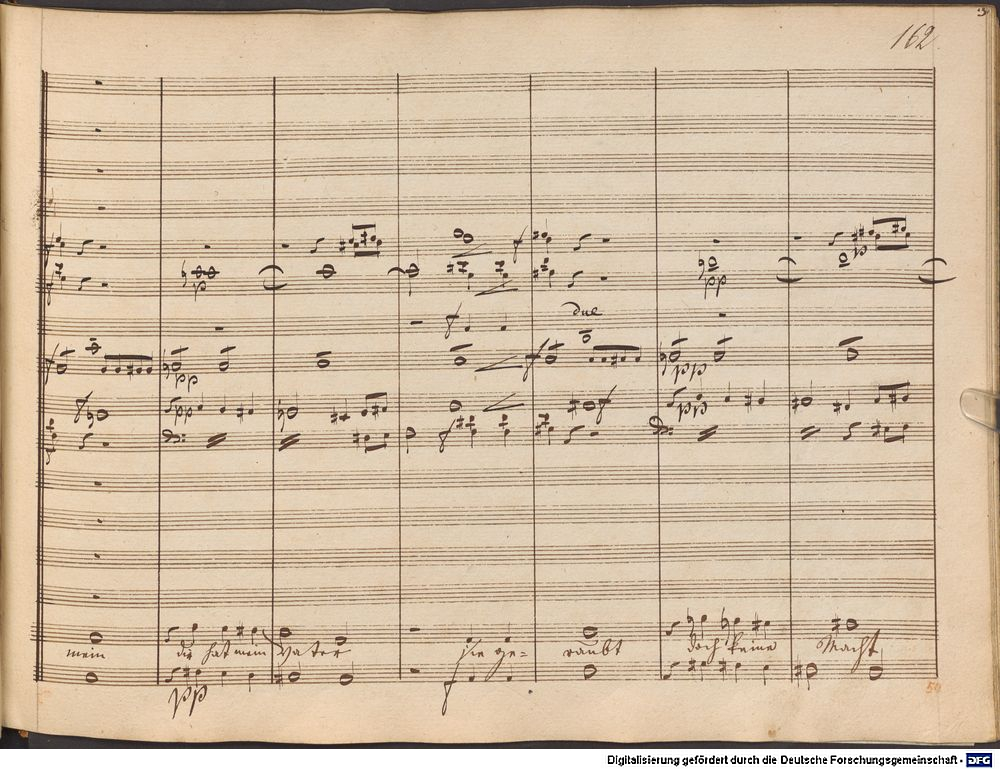 162
f f
p
f due
f pp f pp
f pp f pp
f
mein die hat mein Vater sie ge= raubt doch keine Macht
pp f
Digitalisierung gefördert durch die Deutsche Forschungsgemeinschaft - DFG